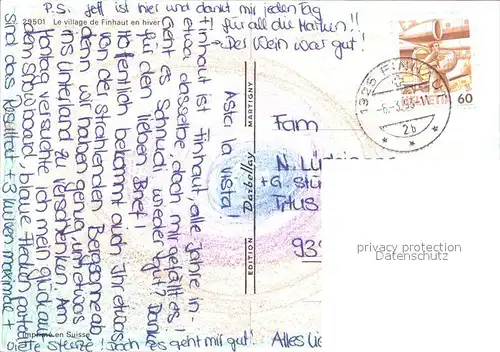 P.S. Jeff ist hier und dankt mir jeden Tag
für all die Marken!!
→ Der Wein war gut!
29501 Le village de Finhaut en hiver
Finhaut ist Finhaut, alle Jahre in.
etwa dasselbe, doch mir gefällt es!
Geht es Schnudi wieder gut? Danke
für den lieben Brief!
Hoffentlich bekommt auch Ihr etwas
von der strahlenden Bergsonne ab
denn wir haben genug, um etwas
ins Unterland zu verschenken. Am
Montag versuchte ich mein Glück auf
dem Snowboard, blaue Flecken
sind das Resultat + 3 Kurven maximale +
viele Stürze! Doch es geht mir gut!
Alles Lie
Asta la vista!
Imprimé en Suisse
EDITION Darbellay MARTIGNY
1325 FINHAUT
-6.-3.93
2b
HELVETIA
60
Fam
N.
+ G.
Titus
93
privacy protection
Veikkos.com